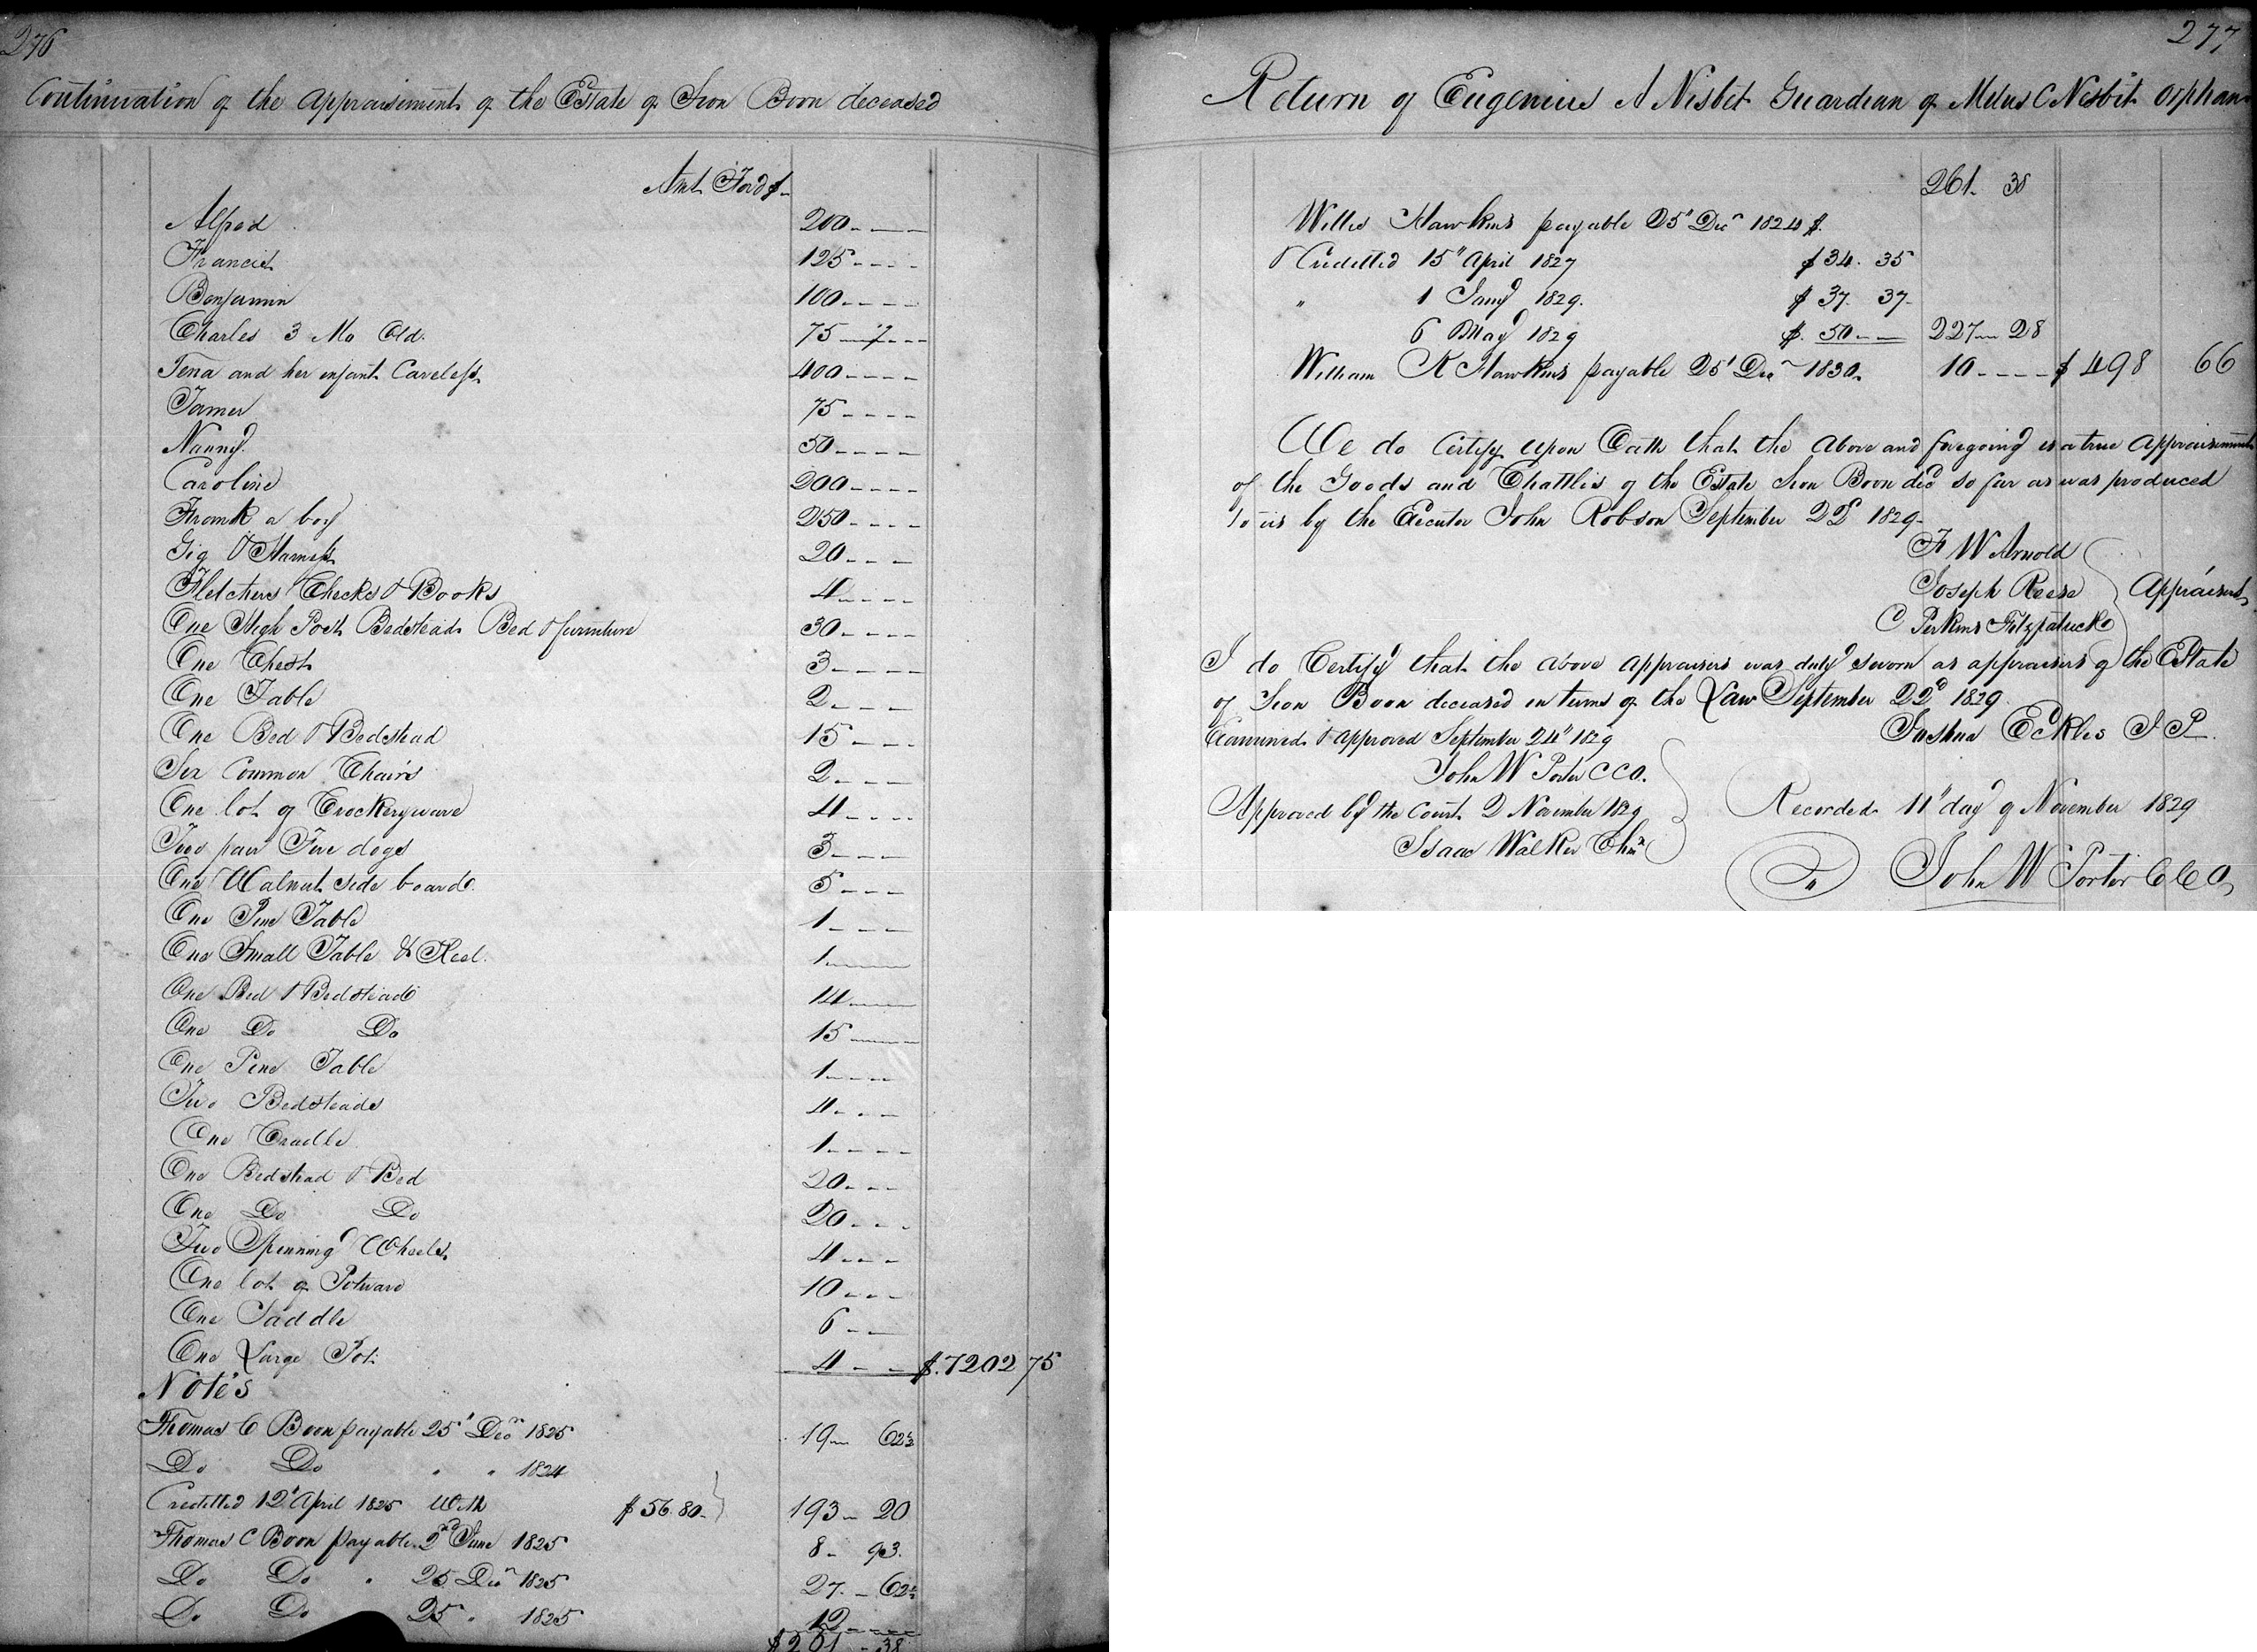 276
Continuation of the Appraisement of the Estate of Sion Boon deceased
Amt Ford $
Alfred 200
Francis 125
Benjamin 100
Charles 3 Mo Old 75
Tena and her infant Careless 400
Tamer 75
Nanny 50
Caroline 200
Frank a boy 250
Gig & Harness 20
Fletchers Checks & Books 4
One High Post Bedstead Bed & furniture 30
One Chest 3
One Table 2
One Bed & Bedstead 15
Six Common Chairs 2
One lot of Crockeryware 4
Two pair Fire dogs 3
One Walnut side board 5
One Pine Table 1
One Small Table & Reel 1
One Bed & Bedstead 14
One Do Do 15
One Pine Table 1
Two Bedsteads 4
One Cradle 1
One Bedstead & Bed 20
One Do Do 20
Two Spinning Wheels 4
One lot of Potware 10
One Saddle 6
One Large Pot 4 $.7202 75
Notes
Thomas C Boon payable 25" Decr 1825 19 62½
Do Do " " 1824
Creditted 12" April 1825 With $56.80 193 20
Thomas C Boon payable 2nd June 1825 8 93
Do Do " 25 Decr 1825 27 62½
Do Do 25 " 1825 12
$261 38
277
Return of Eugenius A Nisbit Guardian of Milus C Nisbit Orphan
261. 38
Willie Hawkins payable 25" Decr 1824 $
& Creditted 15" April 1827 $34. 35
" 1 Jany 1829. $37. 37
6 May 1829 $.50 227 28
William R Hawkins payable 25" Decr 1830. 10 $498 66
We do Certify upon Oath that the above and foregoing is a true appraisement
of the Goods and Chattles of the Estate Sion Boon decd so far as was produced
to us by the Executor John Robson September 22d 1829
F W Arnold
Joseph Reese Appraisers
C Perkins Fitzpatrick
I do Certify that the above appraisers was duly sworn as appraisers of the Estate
of Sion Boon deceased in terms of the Law September 22d 1829.
Joshua Eckles J P.
Examined & approved September 24" 1829
John W Porter CCO.
Approved by the Court 2 November 1829 Recorded 11" day of November 1829
Isaac Walker Chmn
John W Porter CCO,